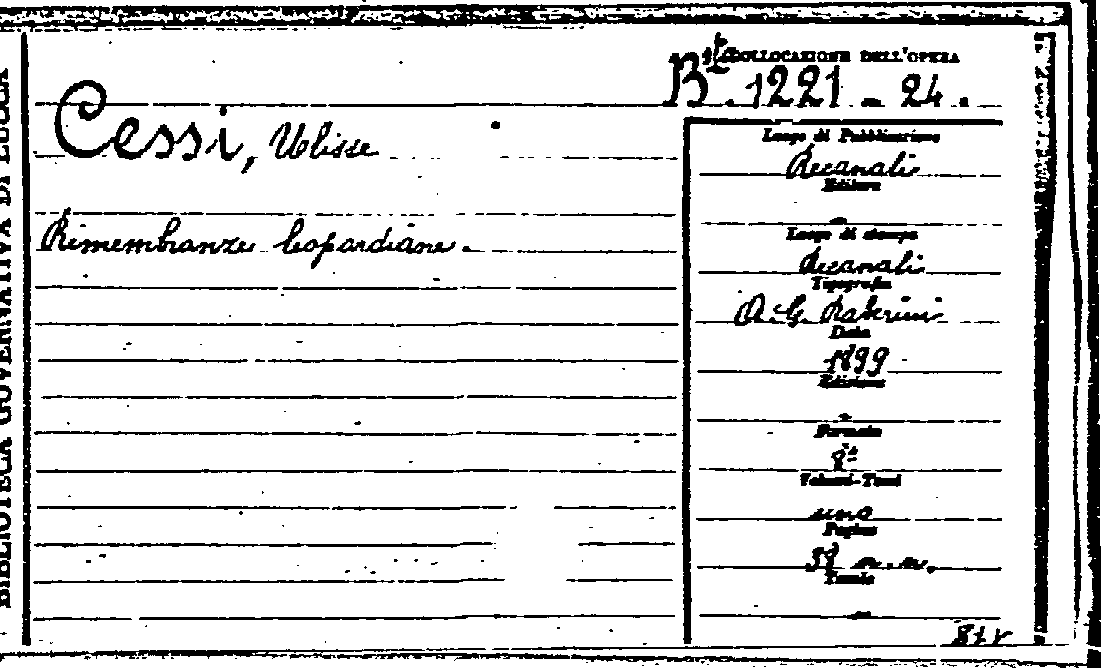 BIBLIOTECA GOVERNATIVA DI LUCCA
COLLOCAZIONE DELL'OPERA
Bta. 1221 - 24.
Cessi, Ulisse
Rimembranze leopardiane.
Luogo di Pubblicazione
Recanati
Editore
-
Luogo di stampa
Recanati
Tipografia
Data
1899
Edizione
-
Formato
8º
Volumi-Tomi
uno
Pagine
38 n. n.
Tavole
-